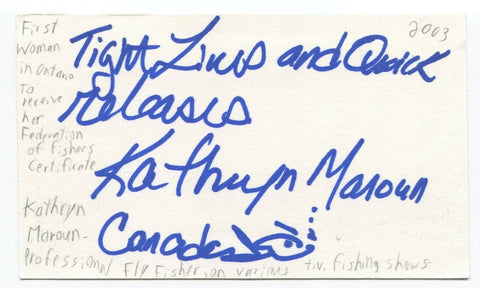 First
Woman
in Ontario
To
receive
her
Federation
of fishers
Certificate
2003
Tight Lines and Quick
Releases
Kathryn Maroun
Canada
Kathryn
Maroun-
Professional Fly Fisher, on various t.v. fishing shows